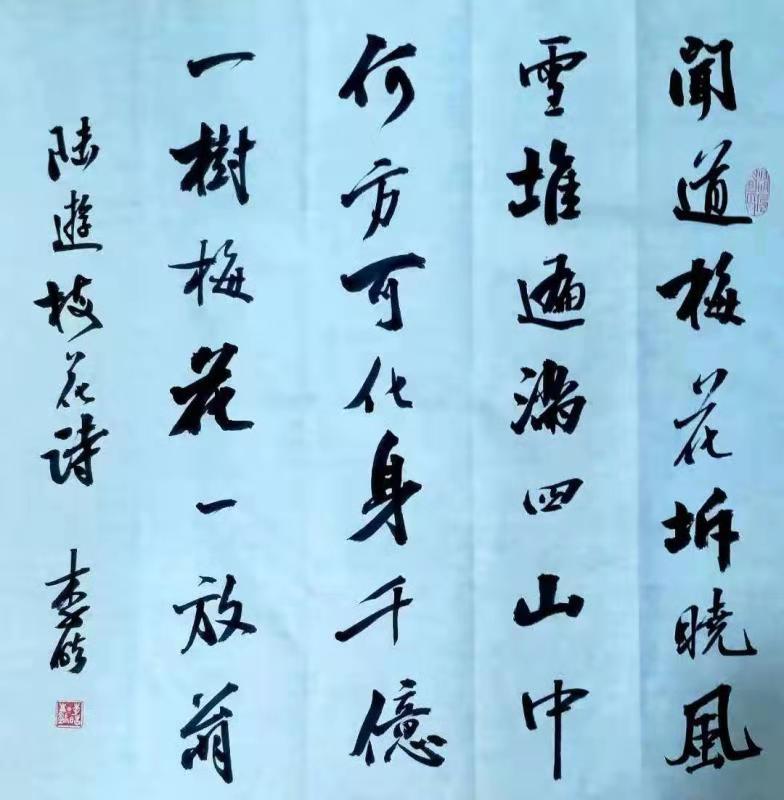 聞道梅花坼曉風
雪堆遍滿四山中
何方可化身千億
一樹梅花一放翁
陸遊梅花詩